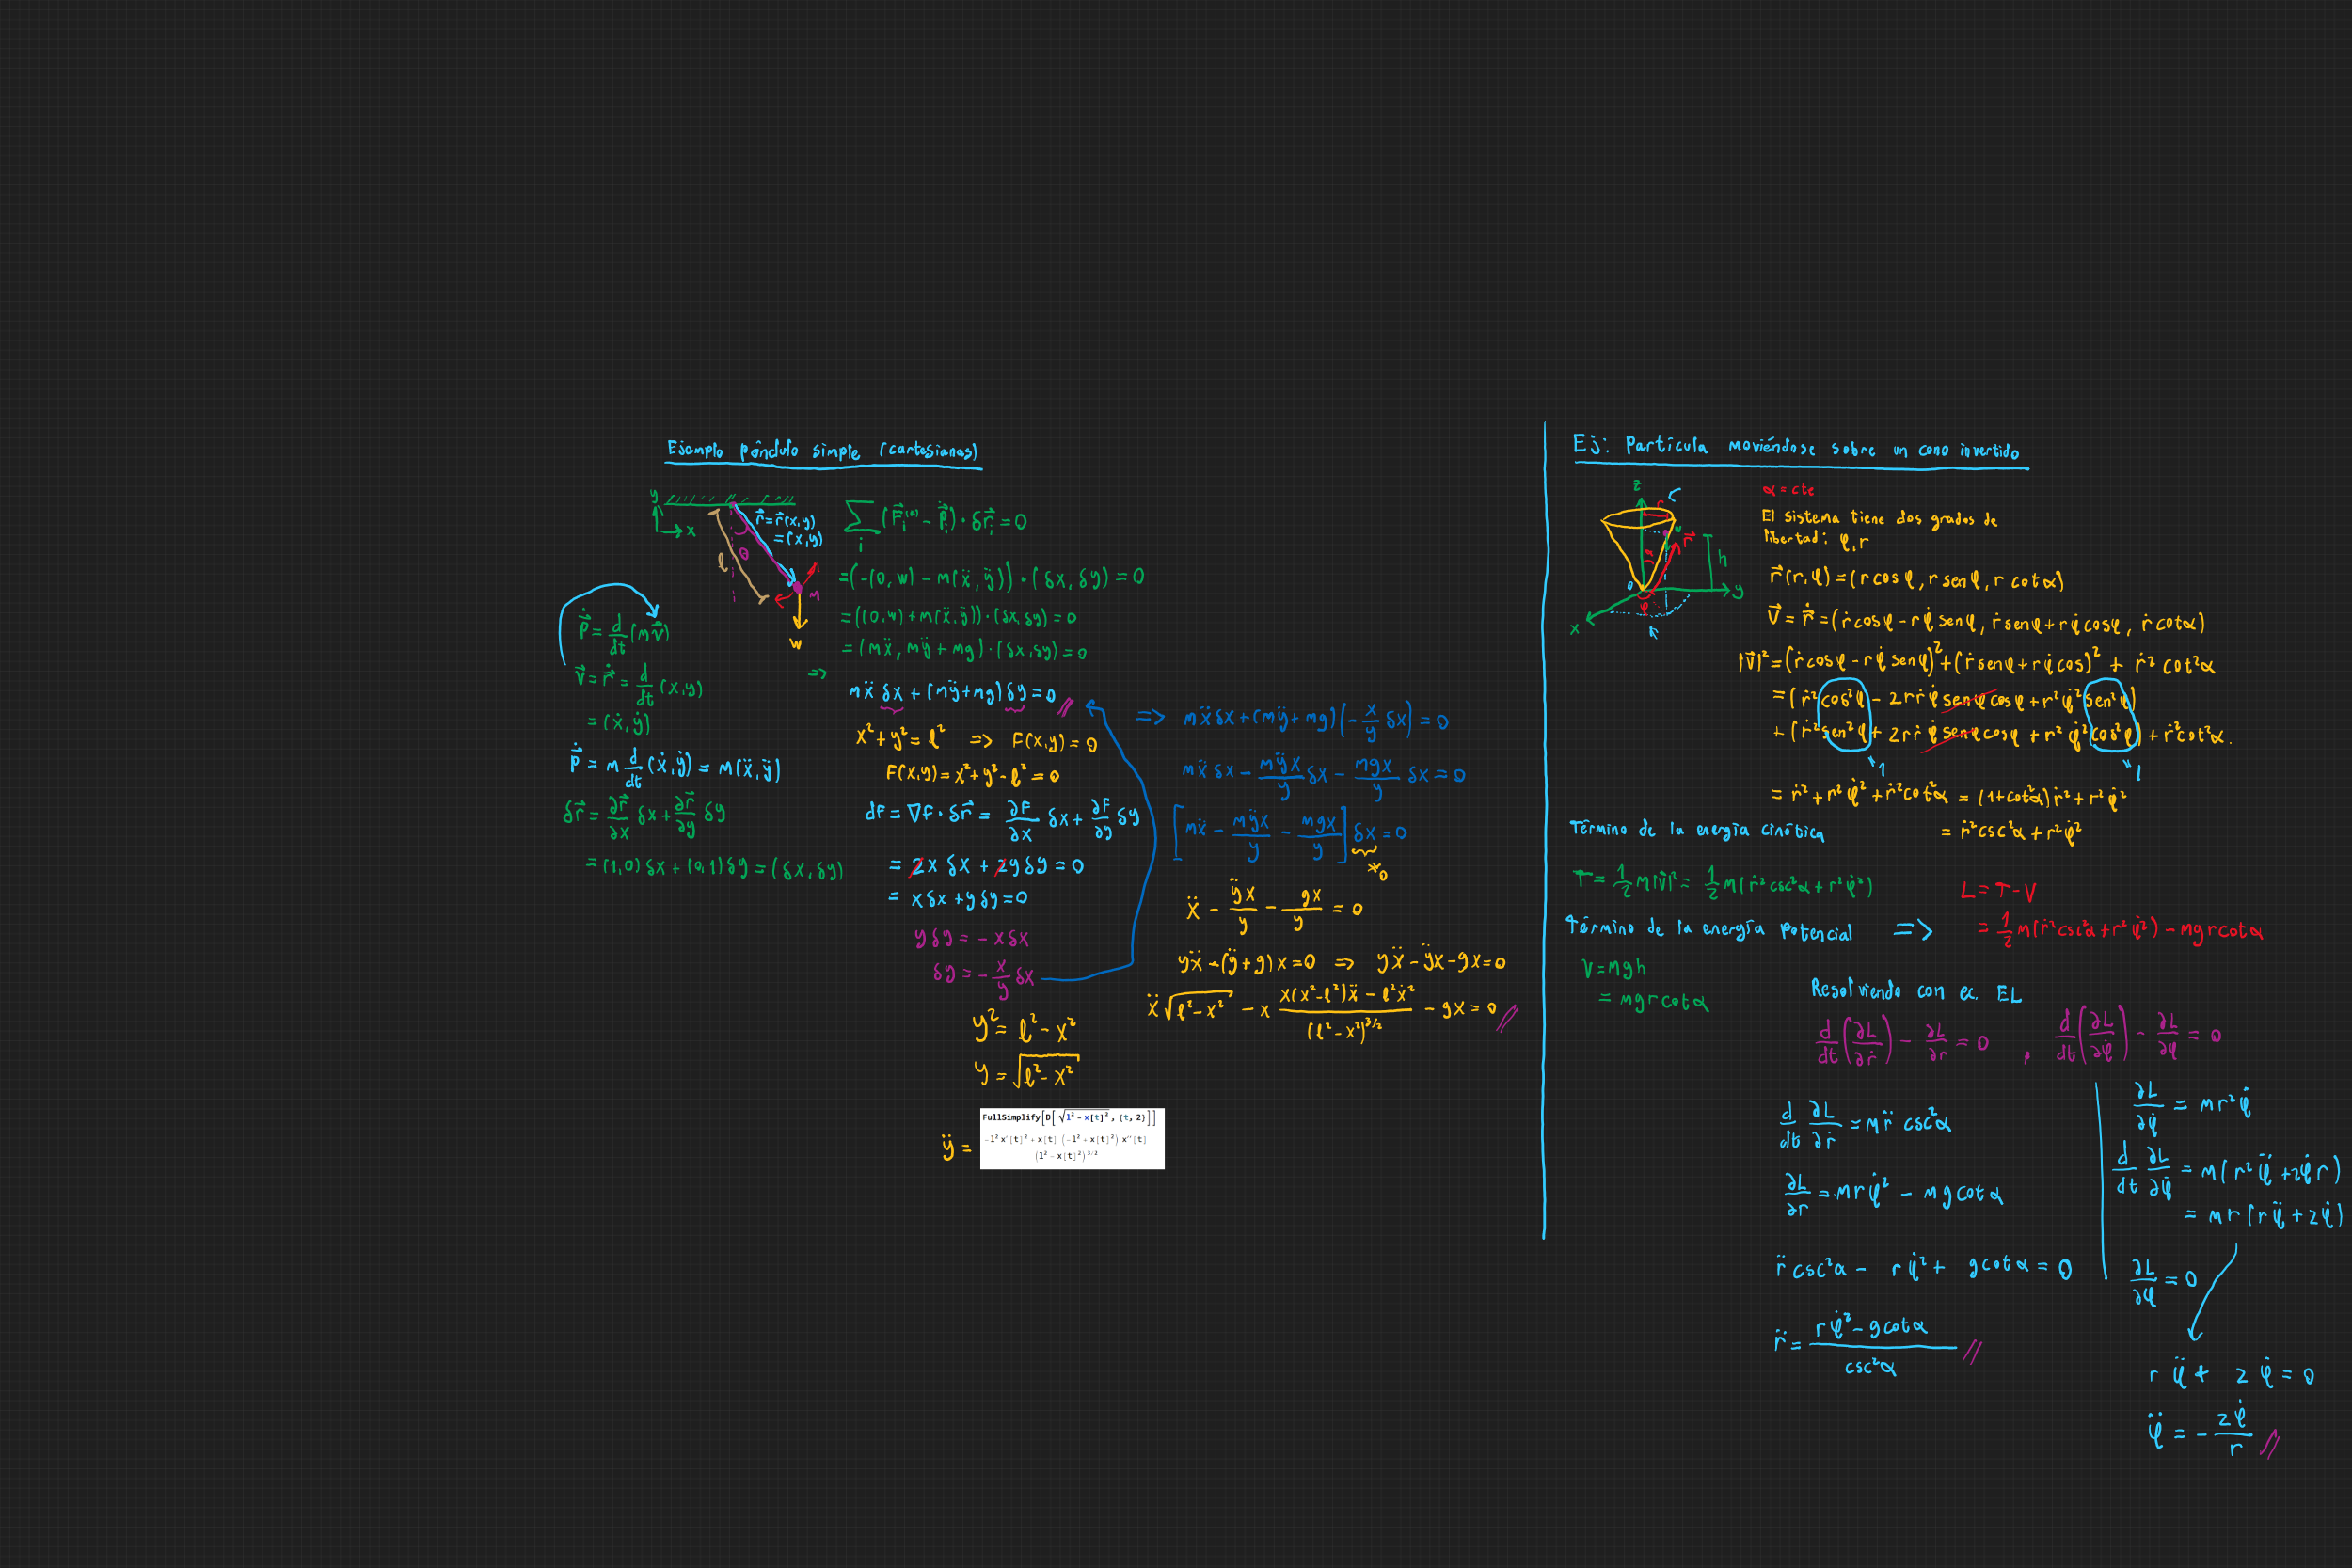 Ejemplo péndulo simple (cartesianas)
y
x
ℓ
θ
r⃗ = r⃗(x,y)
= (x,y)
M
w
ṗ⃗ = d/dt (m v⃗)
v⃗ = ṙ⃗ = d/dt (x,y)
= (ẋ, ẏ)
ṗ⃗ = m d/dt (ẋ, ẏ) = m(ẍ, ÿ)
δr⃗ = ∂r⃗/∂x δx + ∂r⃗/∂y δy
= (1,0) δx + (0,1) δy = (δx, δy)
∑_i (F⃗_i^(a) - ṗ⃗_i) · δr⃗_i = 0
= (-(0,w) - m(ẍ, ÿ)) · (δx, δy) = 0
= ((0,w) + m(ẍ, ÿ)) · (δx, δy) = 0
= (mẍ, mÿ + mg) · (δx, δy) = 0
=>
mẍ δx + (mÿ + mg) δy = 0 //
x² + y² = ℓ² => F(x,y) = 0
F(x,y) = x² + y² - ℓ² = 0
dF = ∇F · δr⃗ = ∂F/∂x δx + ∂F/∂y δy
= 2x δx + 2y δy = 0
= x δx + y δy = 0
y δy = - x δx
δy = - x/y δx
y² = ℓ² - x²
y = √(ℓ² - x²)
ÿ =
FullSimplify[D[√(l² - x[t]²), {t, 2}]]
(-l² x'[t]² + x[t] (-l² + x[t]²) x''[t]) / (l² - x[t]²)^(3/2)
=> mẍ δx + (mÿ + mg)(- x/y δx) = 0
mẍ δx - mÿx/y δx - mgx/y δx = 0
[mẍ - mÿx/y - mgx/y] δx = 0
0
ẍ - ÿx/y - gx/y = 0
yẍ - (ÿ + g) x = 0 => yẍ - ÿx - gx = 0
ẍ √(ℓ² - x²) - x (x(x² - ℓ²)ẍ - ℓ²ẋ²)/(ℓ² - x²)^(3/2) - gx = 0 //
Ej: Partícula moviéndose sobre un cono invertido
z
r
r⃗
h
α
0
y
φ
x
α = cte
El sistema tiene dos grados de
libertad: φ, r
r⃗(r, φ) = (r cos φ, r sen φ, r cot α)
v⃗ = ṙ⃗ = (ṙ cos φ - rφ̇ sen φ, ṙ sen φ + rφ̇ cos φ, ṙ cot α)
|v⃗|² = (ṙ cos φ - rφ̇ sen φ)² + (ṙ sen φ + rφ̇ cos)² + ṙ² cot² α
= (ṙ² cos² φ - 2rṙφ̇ sen φ cos φ + r²φ̇² sen² φ)
+ (ṙ² sen² φ + 2rṙφ̇ sen φ cos φ + r²φ̇² cos² φ) + ṙ² cot² α.
1
1
= ṙ² + r²φ̇² + ṙ² cot² α = (1 + cot² α) ṙ² + r²φ̇²
= ṙ² csc² α + r²φ̇²
Término de la energía cinética
T = 1/2 m|v⃗|² = 1/2 m(ṙ² csc² α + r²φ̇²)
Término de la energía potencial =>
V = mgh
= mgr cot α
L = T - V
= 1/2 m(ṙ² csc² α + r²φ̇²) - mgr cot α
Resolviendo con ec. EL
d/dt (∂L/∂ṙ) - ∂L/∂r = 0 , d/dt (∂L/∂φ̇) - ∂L/∂φ = 0
d/dt ∂L/∂ṙ = m r̈ csc² α
∂L/∂r = mrφ̇² - mg cot α
r̈ csc² α - rφ̇² + g cot α = 0
r̈ = (rφ̇² - g cot α)/(csc² α) //
∂L/∂φ̇ = mr²φ̇
d/dt ∂L/∂φ̇ = m(r²φ̈ + 2φ̇r)
= mr(rφ̈ + 2φ̇)
∂L/∂φ = 0
rφ̈ + 2φ̇ = 0
φ̈ = - 2φ̇/r //